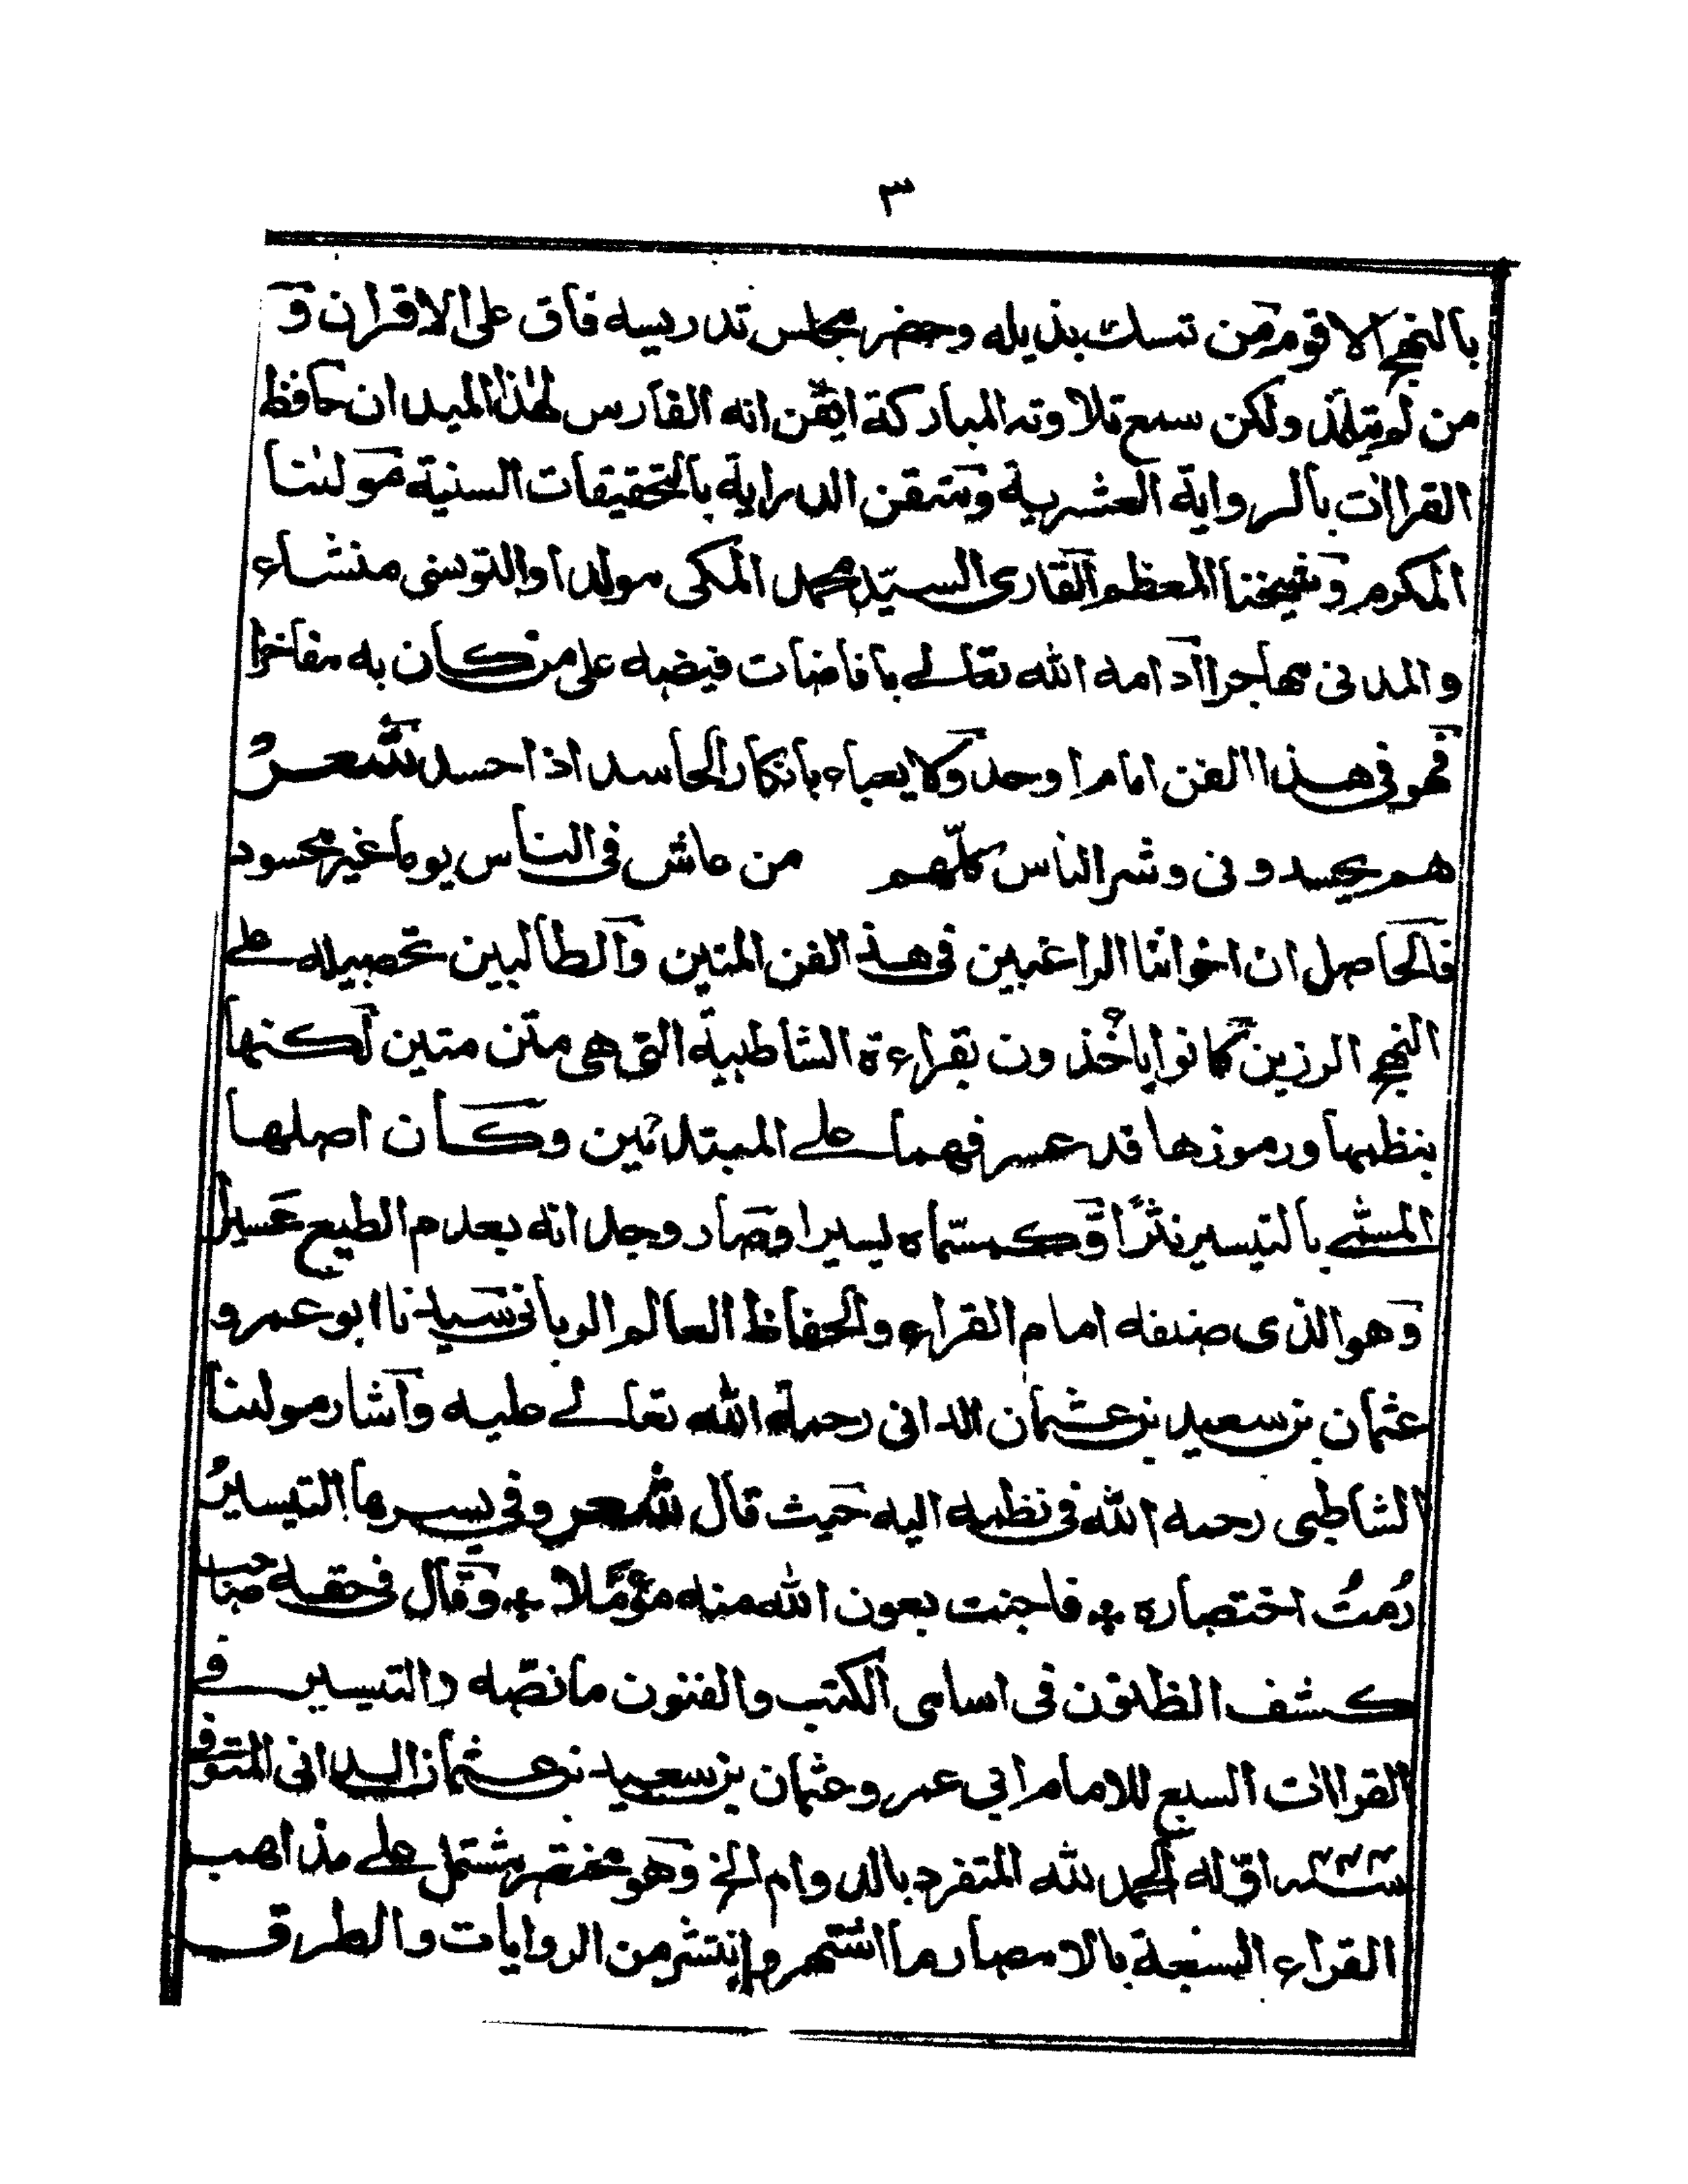 ٣
بالنهج الاقوم من تمسك بذيله وحضر مجلس تدريسه فاق على الاقران و
من لم يتلمذ ولكن سمع تلاوته المباركة ايقن انه الفارس لهذا الميدان حافظ
القراات بالرواية العشرية ومتقن الدراية بالتحقيقات السنية مولنا
المكرم وشيخنا المعظم القارى السيّد محمد المكى مولدا والتونسى منشاء
والمدنى مهاجرا ادامه الله تعالے بافاضات فيضه على من كان به مفاخرا
فهو فى هذا الفن امام اوحد ولا يعباء بانكار الحاسد اذا حسد شعرٌ
هم يحسدونى وشر الناس كلّهم من عاش فى الناس يوما غير محسود
فالحاصل ان اخواننا الراغبين فى هذ الفن المتين والطالبين تحصيله علے
النهج الرزين كانوا ياخذون بقراءة الشاطبية التى هى متن متين لكنها
بنظمها ورموزها قد عسر فهمها علے المبتدئين وكان اصلها
المسمّٰے بالتيسير نثرًا وكمسمّاه يسيرا وصار وجدانه بعدم الطبع عسيرا
وهو الذى صنفه امام القراء والحفاظ العالم الربانى سيدنا ابو عمرو
عثمان بن سعيد بن عثمان الدانى رحمة الله تعالے عليه واشار مولنا
الشاطبى رحمه الله فى نظمه اليه حيث قال شعر وفى يسرها التيسيرُ
رُمتُ اختصاره * فاجنت بعون الله منه مؤمّلا * وقال فى حقه صاحب
كشف الظنون فى اسامى الكتب والفنون ما نصّه والتيسير فے
القراات السبع للامام ابى عمرو عثمان بن سعيد بن عثمان الدانى المتوفے
اوّله الحمد لله المتفرد بالدوام الخ وهو مختصر مشتمل علے مذاهب
القراء السبعة بالامصار وما اشتهر وانتشر من الروايات والطرق